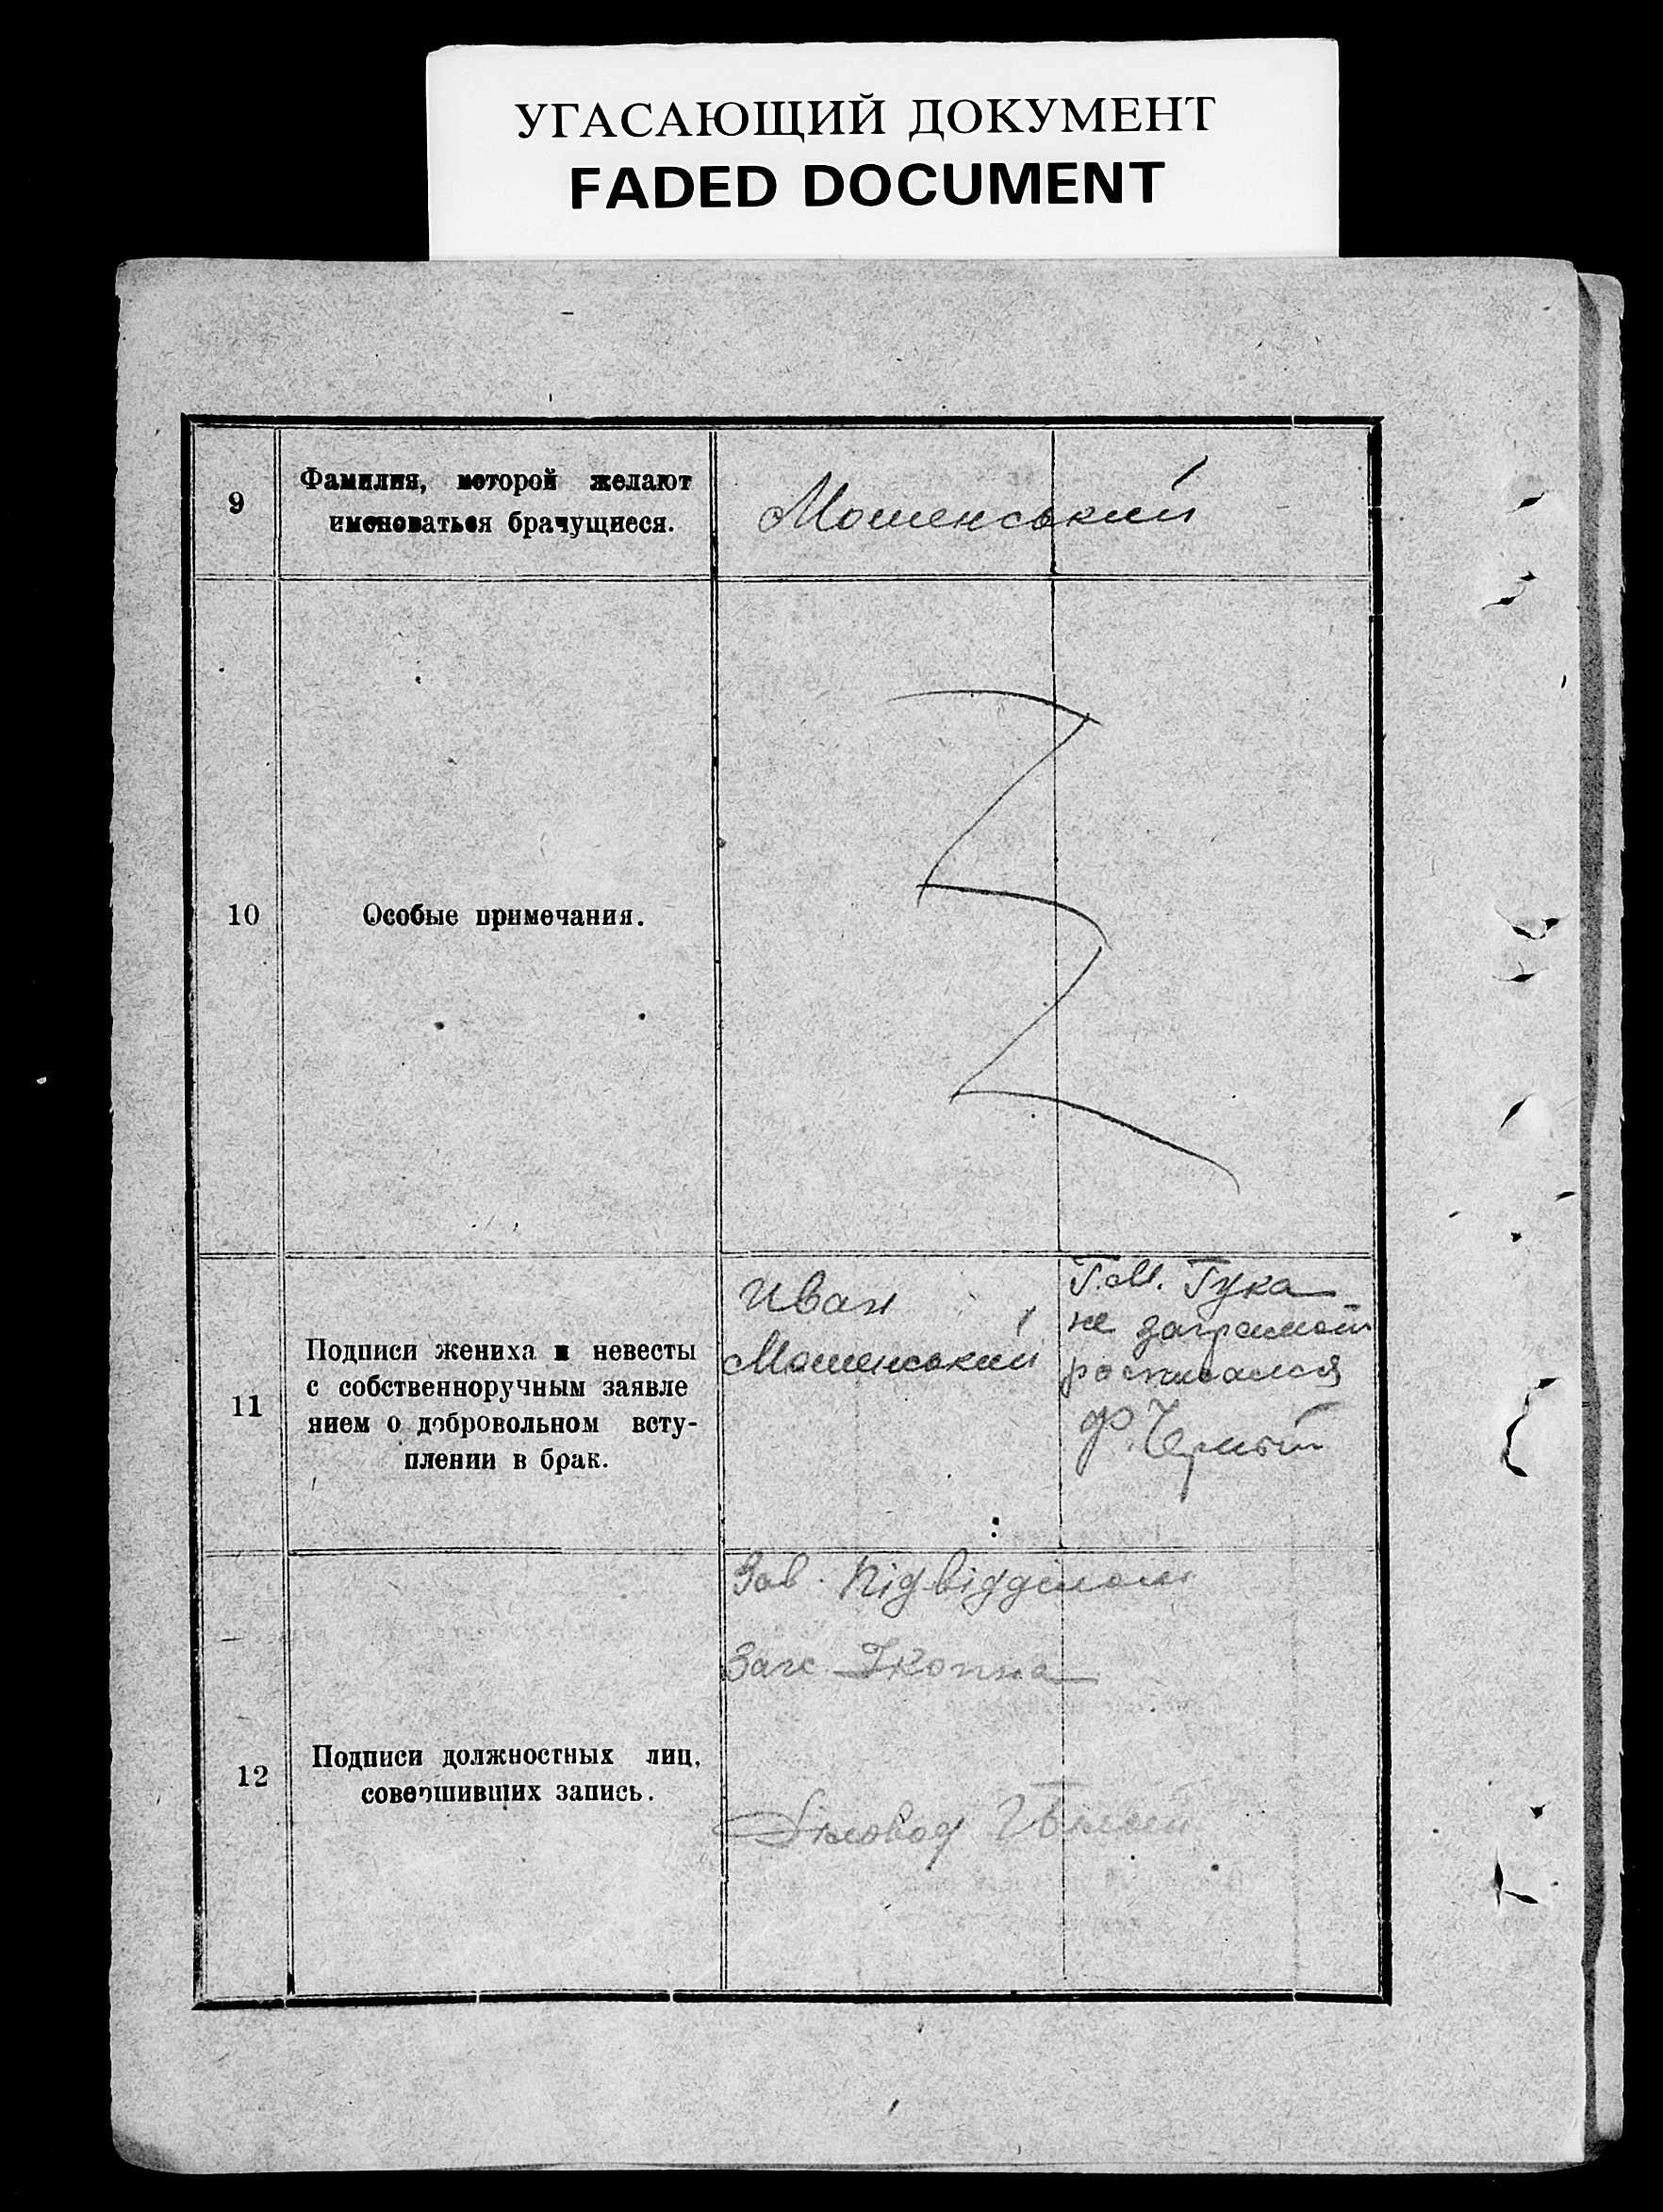 УГАСАЮЩИЙ ДОКУМЕНТ
FADED DOCUMENT
9
Фамилия, которой желают
именоваться брачущиеся.
Мошенський
10
Особые примечания.
11
Подписи жениха и невесты
с собственноручным заявле
нием о добровольном всту-
плении в брак.
Иван
Мошенський
Г.М. Гука
не заграмот
росписался
Ф. Черный
12
Подписи должностных лиц,
совершивших запись.
Зав. Підвідділом
Загс
Діловод